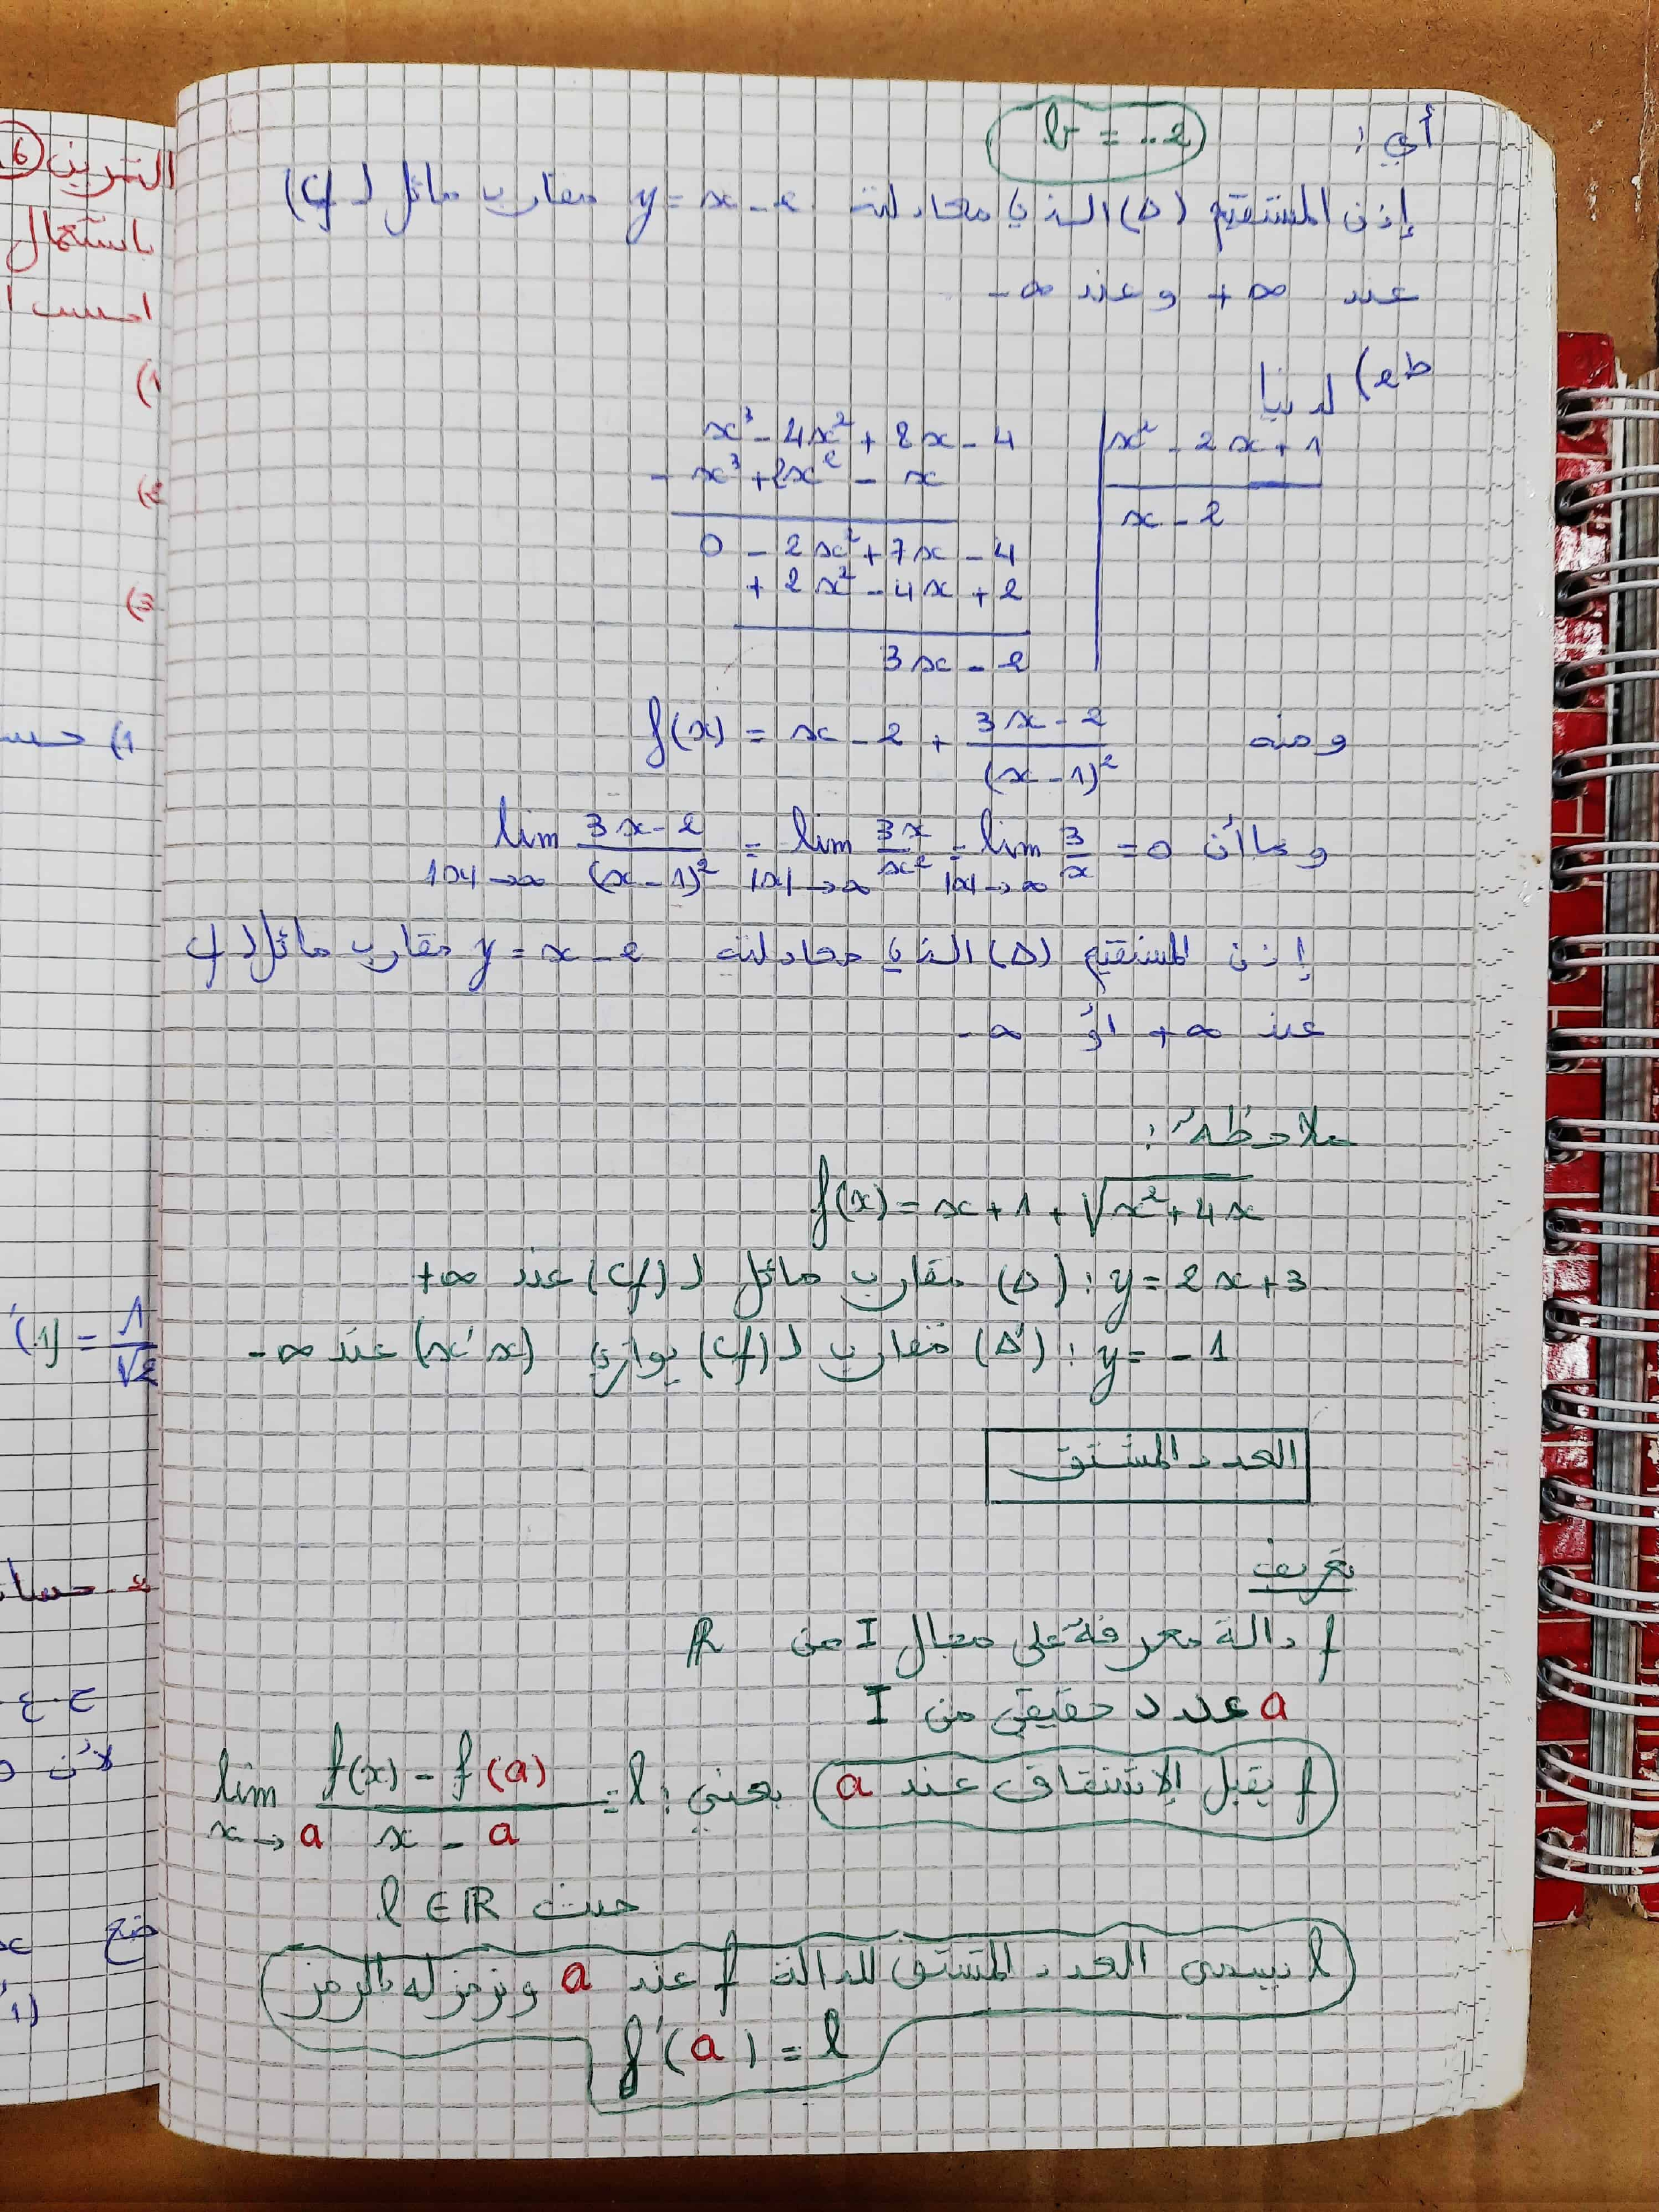 أي : b = -2
إذن المستقيم (Δ) الذي معادلته y = x - 2 مقارب مائل لـ (Cf)
عند +∞ و عند -∞
ط2) لدينا
x³ - 4x² + 8x - 4 | x² - 2x + 1
- x³ + 2x² - x | x - 2
0 - 2x² + 7x - 4
+ 2x² - 4x + 2
3x - 2
ومنه f(x) = x - 2 + (3x - 2)/(x - 1)²
وبما أن lim_{|x|→∞} (3x - 2)/(x - 1)² = lim_{|x|→∞} 3x/x² = lim_{|x|→∞} 3/x = 0
إذن المستقيم (Δ) الذي معادلته y = x - 2 مقارب مائل لـ Cf
عند +∞ أو -∞
ملاحظة :
f(x) = x + 1 + √(x² + 4x)
(Δ) : y = 2x + 3 مقارب مائل لـ (Cf) عند +∞
(Δ') : y = - 1 مقارب لـ (Cf) يوازي (x'x) عند -∞
العدد المشتق
تعريف
f دالة معرفة على مجال I من ℝ
a عدد حقيقي من I
f يقبل الإشتقاق عند a يعني : lim_{x→a} (f(x) - f(a))/(x - a) = l
حيث l ∈ ℝ
l يسمى العدد المشتق للدالة f عند a ونرمز له بالرمز
f'(a) = l
التمرين 6
باستعمال
1)
2)
3)
1) حسا
(1) = 1/√2
2- حسا
ح.ع
لأن
ضع